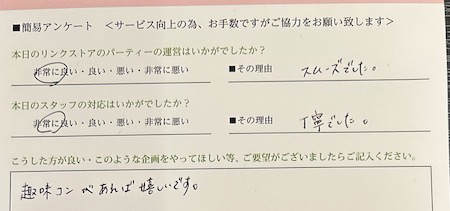 ■簡易アンケート　＜サービス向上の為、お手数ですがご協力をお願い致します＞
本日のリンクストアのパーティーの運営はいかがでしたか？
非常に良い・良い・悪い・非常に悪い　■その理由　スムーズでした。
本日のスタッフの対応はいかがでしたか？
非常に良い・良い・悪い・非常に悪い　■その理由　丁寧でした。
こうした方が良い・このような企画をやってほしい等、ご要望がございましたらご記入ください。
趣味コンがあれば嬉しいです。